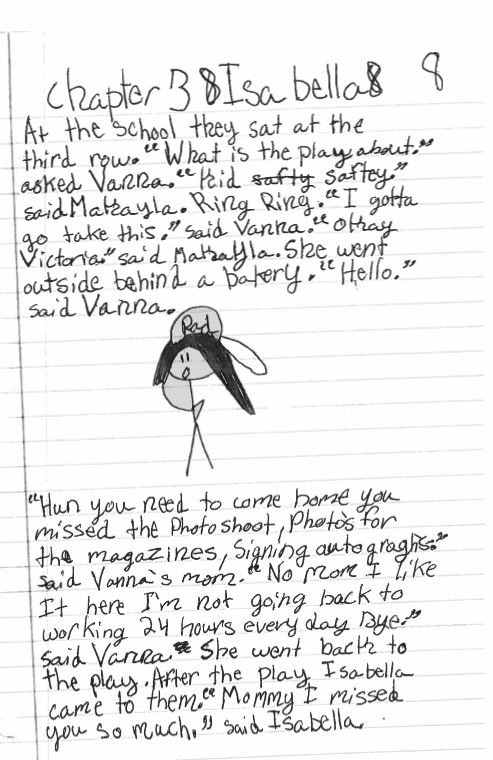 Chapter 3 8Isabella8 8
At the school they sat at the
third row. "What is the play about."
asked Vanna. "Kid safty saftey."
said Makayla. Ring Ring. "I gotta
go take this." said Vanna. "Okay
Victoria" said Makayla. She went
outside behind a bakery. "Hello."
said Vanna.
Rad
"Hun you need to come home you
missed the Photoshoot, Photo's for
the magazines, Signing autograghs."
said Vanna's mom. "No mom I like
It here I'm not going back to
working 24 hours every day Bye."
said Vanna. She went back to
the play. After the play Isabella
came to them. "Mommy I missed
you so much." said Isabella.